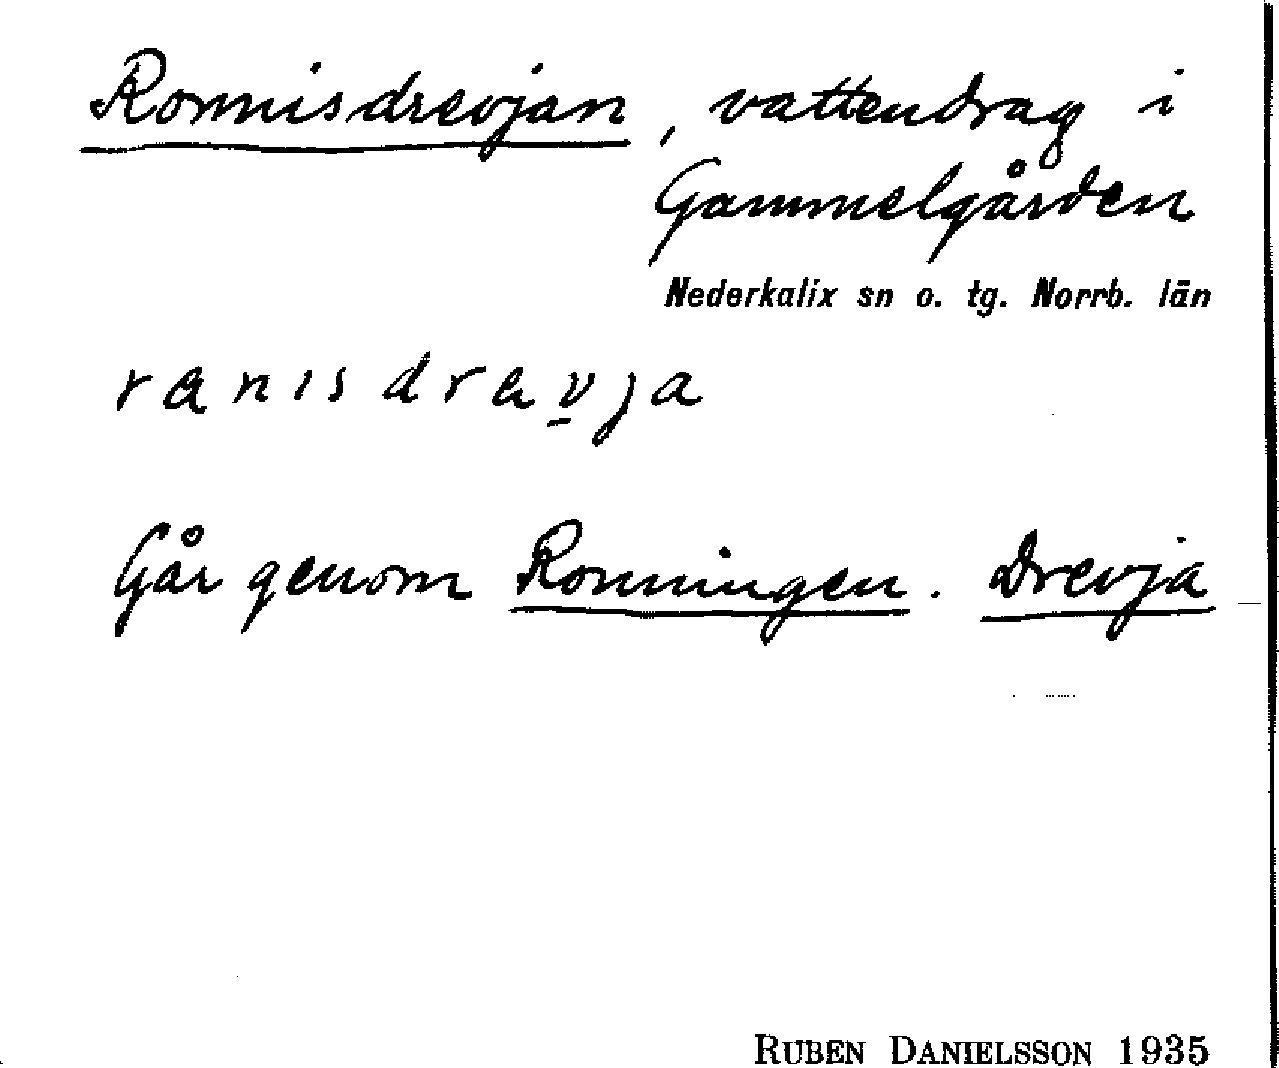 Ronnisdrevjan, vattendrag i
Gammelgården
Nederkalix sn o. tg. Norrb. län
ranisdravja
Går genom Ronningen. Drevja
RUBEN DANIELSSON 1935